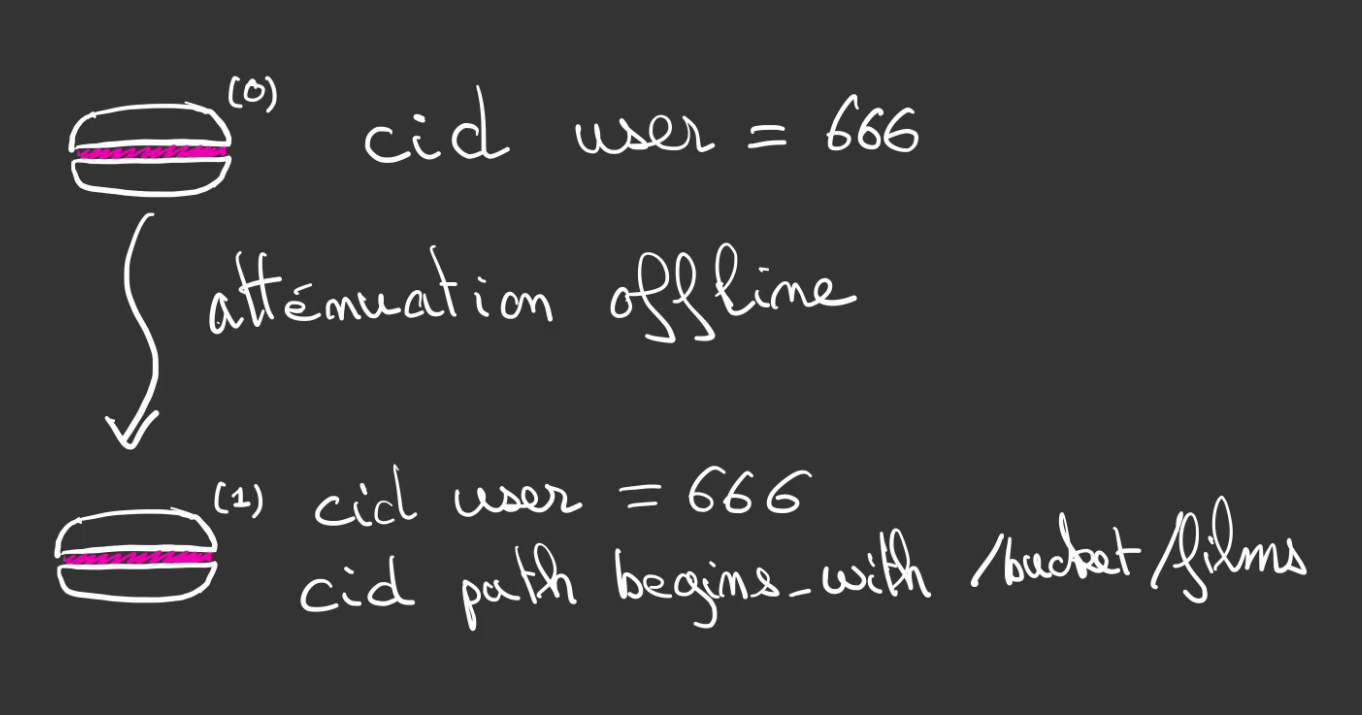 (0) cid user = 666
atténuation offline
(1) cid user = 666
cid path begins_with /bucket/films